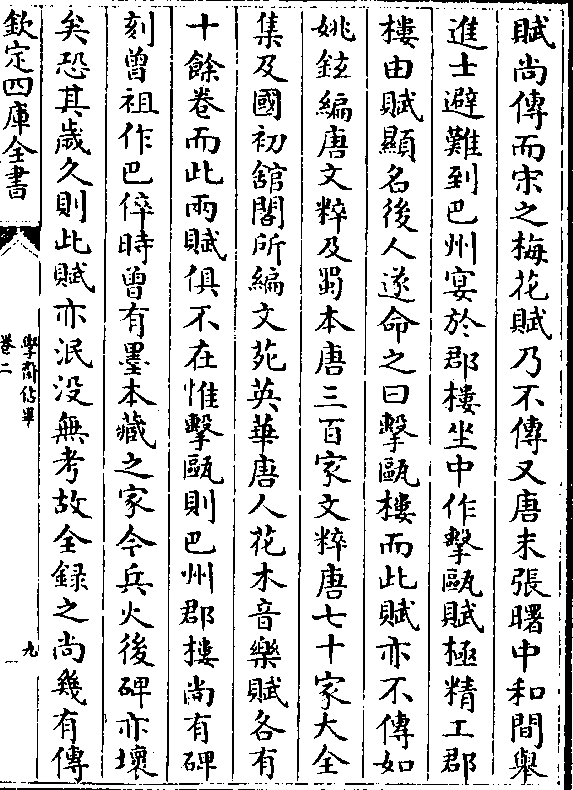 賦尚傳而宋之梅花賦乃不傳又唐末張曙中和間舉
進士避難到巴州宴於郡樓坐中作擊甌賦極精工郡
樓由賦顯名後人遂命之曰擊甌樓而此賦亦不傳如
姚鉉編唐文粹及蜀本唐三百家文粹唐七十家大全
集及國初舘閣所編文苑英華唐人花木音樂賦各有
十餘卷而此兩賦俱不在惟擊甌則巴州郡樓尚有碑
刻曾祖作巴倅時曾有墨本藏之家今兵火後碑亦壞
矣恐其歲久則此賦亦泯没無考故全録之尚幾有傳
欽定四庫全書
學齋佔畢
卷二
九